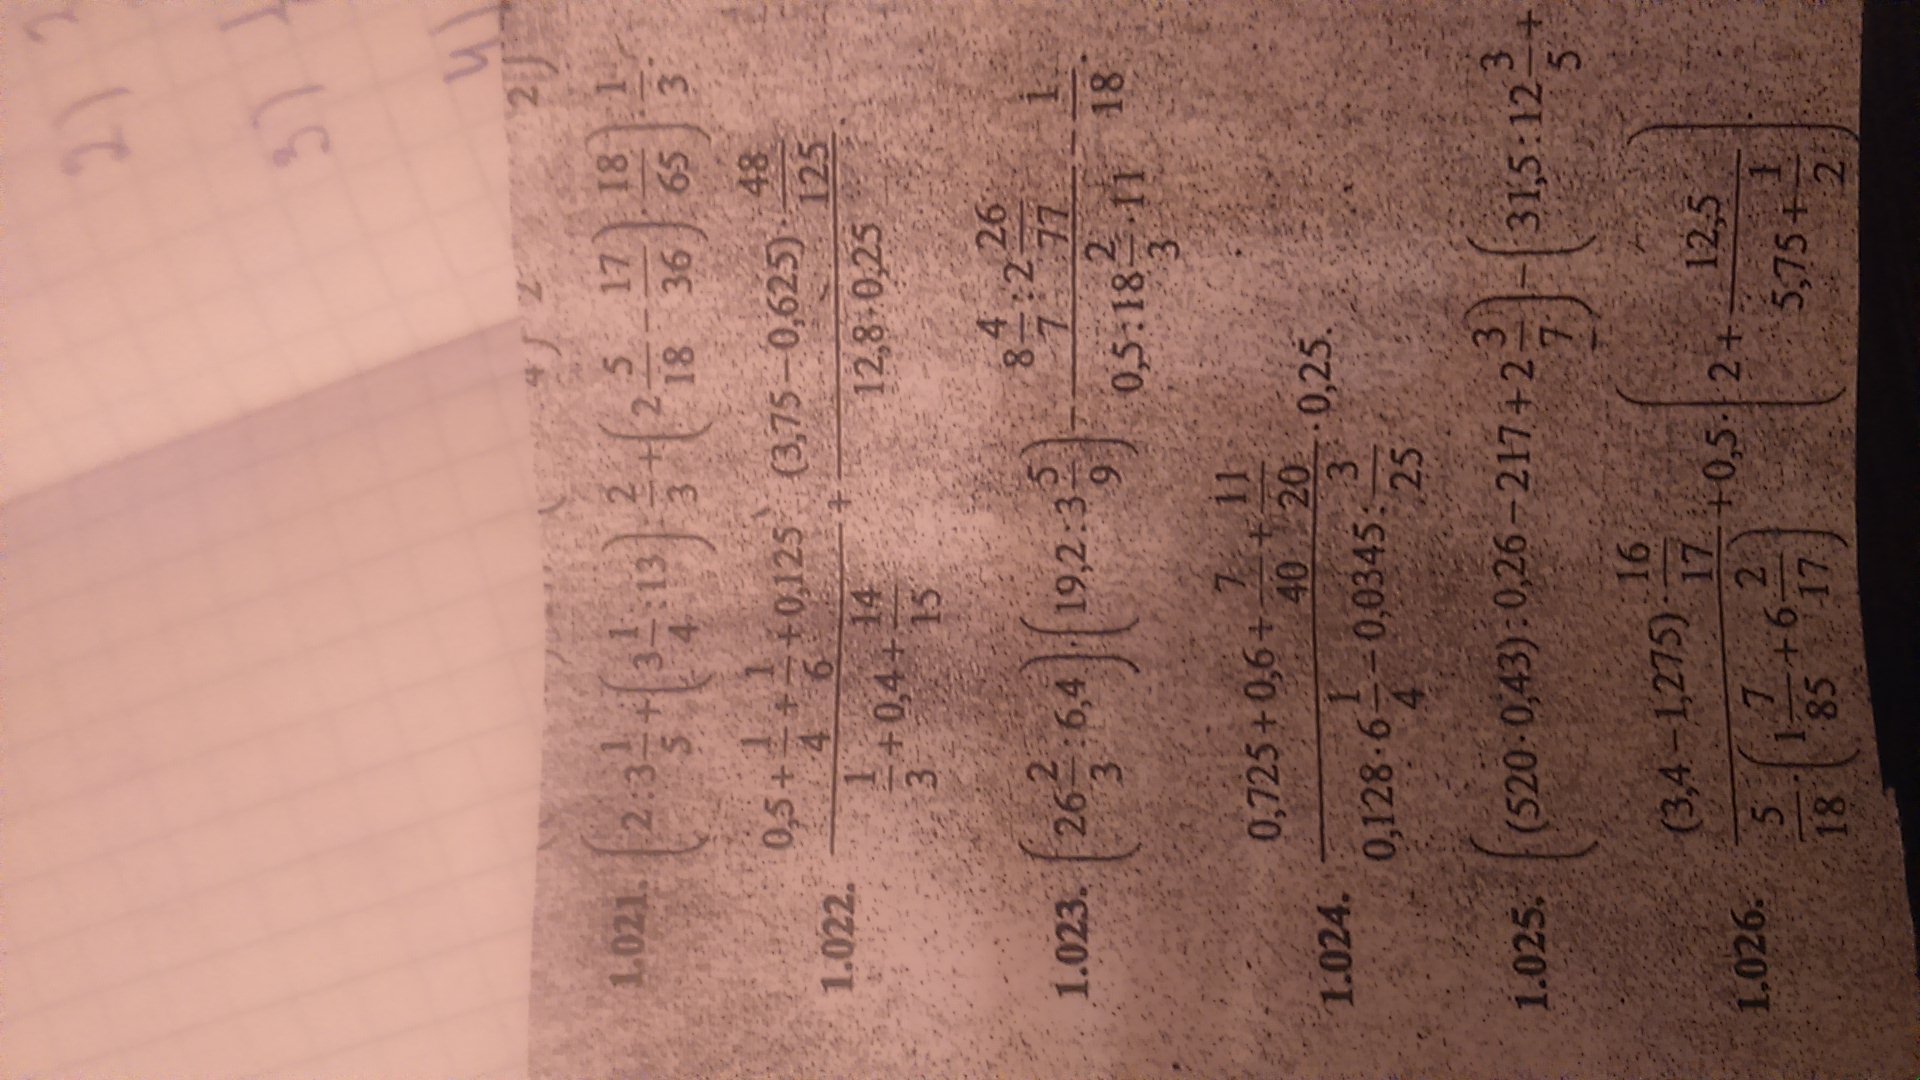 2)
3)
4)
1.021. (2:3 1/5+(3 1/4:13):2/3+(2 5/18-17/36)·18/65)·1/3.
1.022. (0,5+1/4+1/6+0,125)/(1/3+0,4+14/15)+((3,75-0,625)·48/125)/(12,8·0,25)
1.023. (26 2/3:6,4)·(19,2:3 5/9)-(8 4/7:2 26/77)/(0,5:18 2/3·11)-1/18.
1.024. (0,725+0,6+7/40+11/20)/(0,128·6 1/4-0,0345:3/25)·0,25.
1.025. ((520·0,43):0,26-217+2 3/7)-(31,5:12 3/5+
1.026. ((3,4-1,275)·16/17)/(5/18·(1 7/85+6 2/17))+0,5·(2+12,5/(5,75+1/2)).